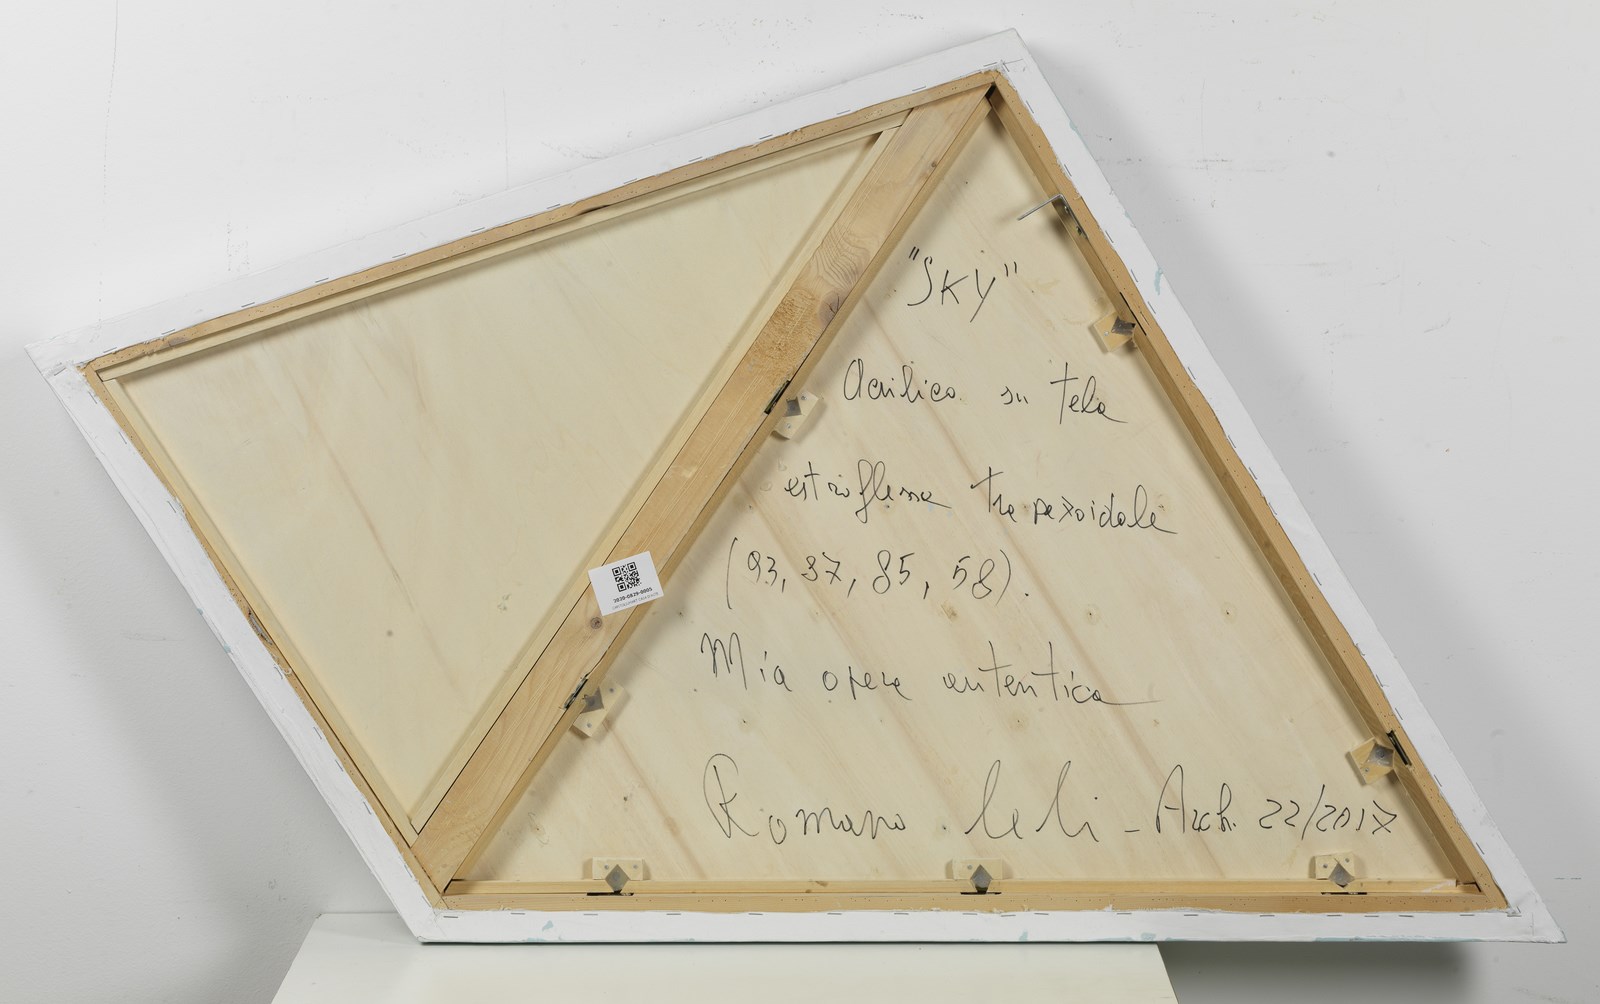 "SKY"
Acrilico su tela
estroflessa trapezoidale
(93, 37, 85, 58).
Mia opera autentica
Romano Leli - Arch. 22/2017
2020-0829-0005